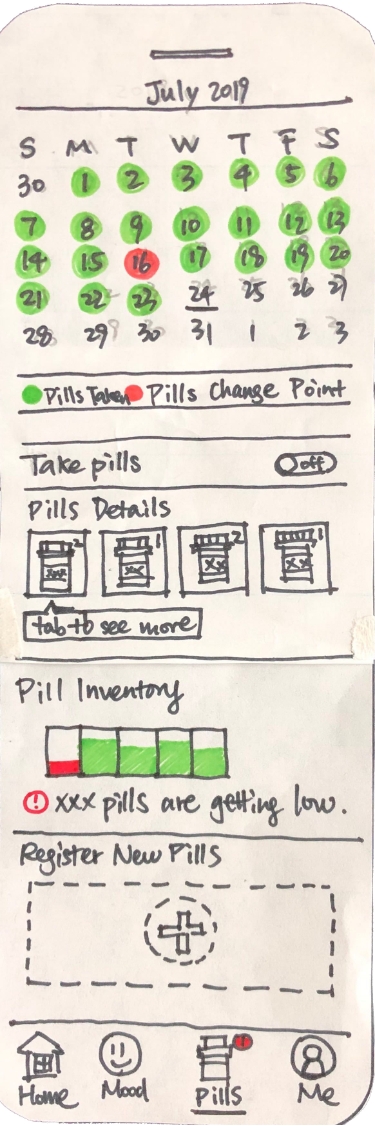 July 2019
S M T W T F S
30 1 2 3 4 5 6
7 8 9 10 11 12 13
14 15 16 17 18 19 20
21 22 23 24 25 26 27
28 29 30 31 1 2 3
Pills Taken Pills Change Point
Take pills off
Pills Details
2 1 2 1
xxx xx xx xx
tab to see more
Pill Inventory
! xxx pills are getting low.
Register New Pills
!
Home Mood Pills Me